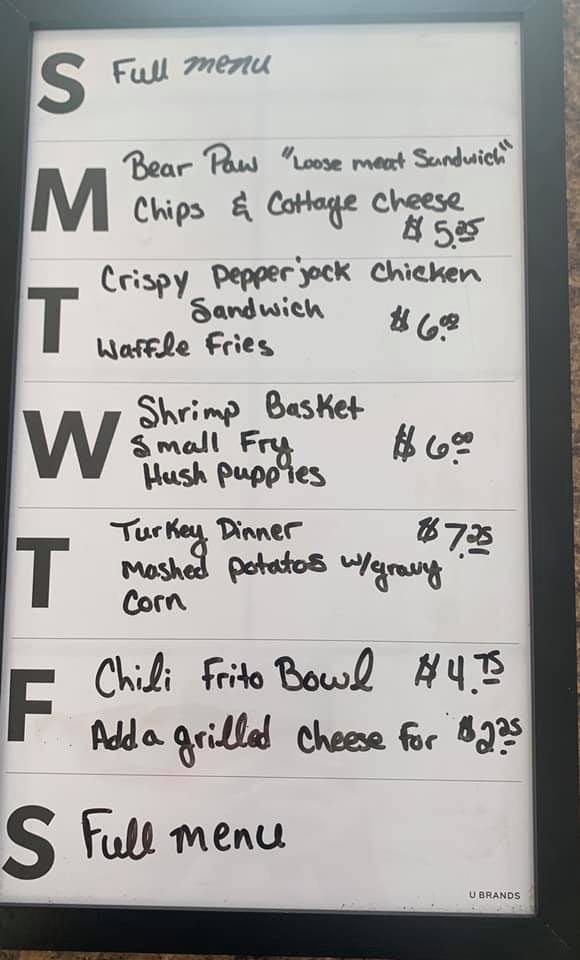 S Full menu
M Bear Paw "Loose meat Sandwich"
Chips & Cottage Cheese
$5.25
T Crispy Pepperjack Chicken
Sandwich $6.00
Waffle Fries
W Shrimp Basket
Small Fry $6.00
Hush Puppies
T Turkey Dinner $7.25
Mashed Potatos w/gravy
Corn
F Chili Frito Bowl $4.75
Add a grilled Cheese for $2.25
S Full menu
U BRANDS